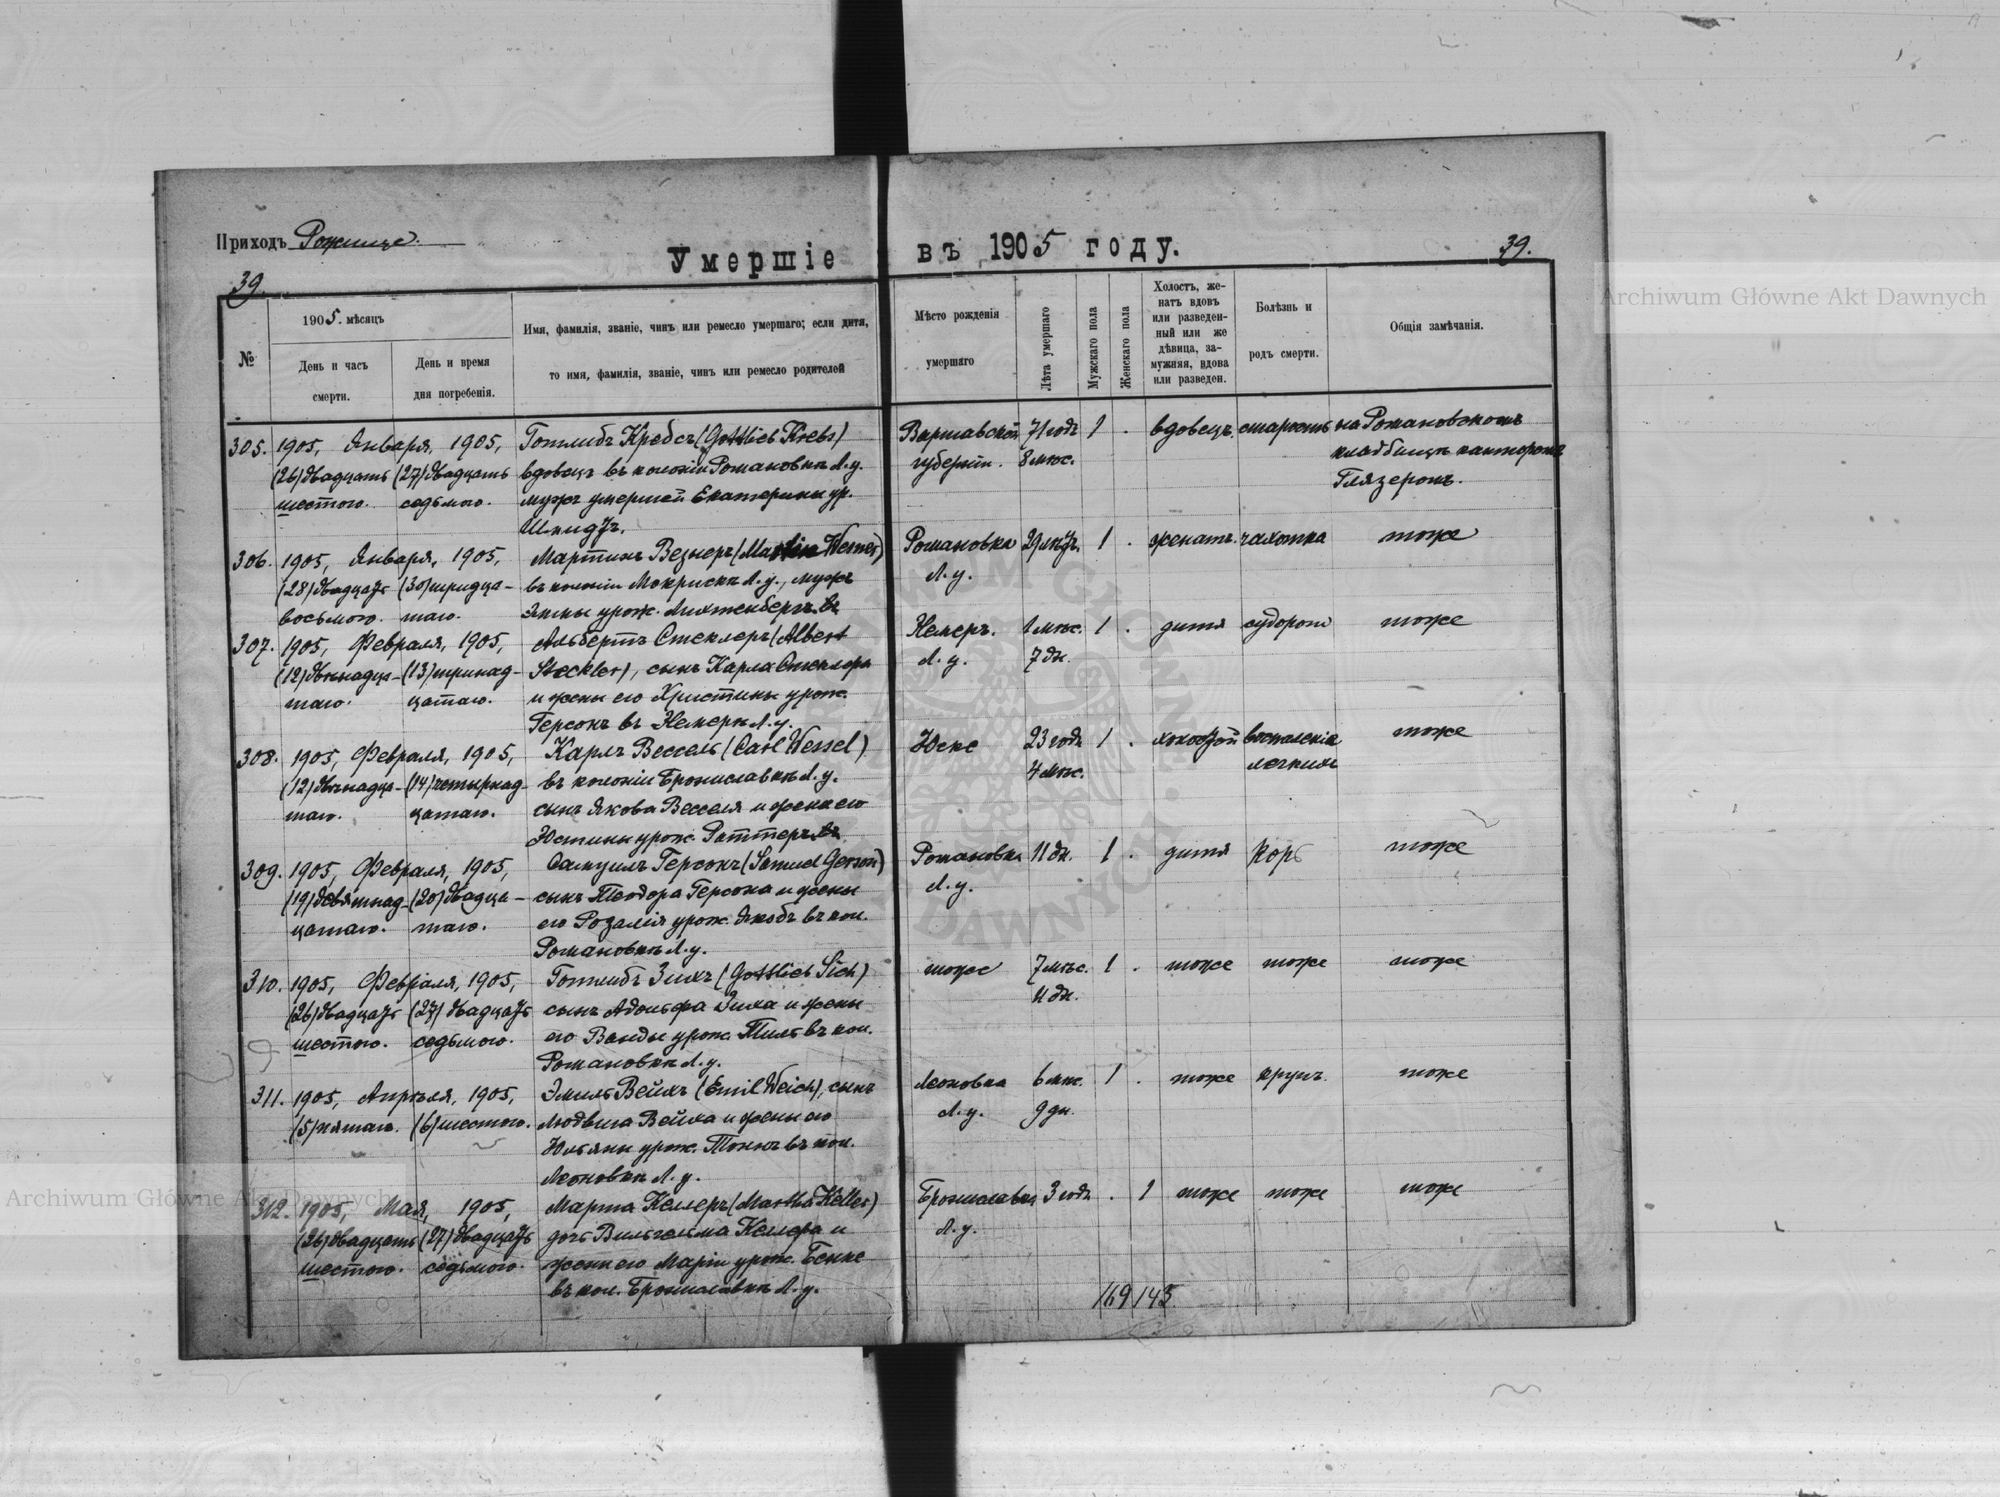 Приходъ Рожище.
Умершіе въ 1905 году.
39.
39.
№
1905. мѣсяцъ
День и часъ смерти.
День и время дня погребенія.
Имя, фамилія, званіе, чинъ или ремесло умершаго; если дитя,
то имя, фамилія, званіе, чинъ или ремесло родителей
Мѣсто рожденія
умершаго
Лѣта умершаго
Мужскаго пола
Женскаго пола
Холостъ, же-
натъ вдовъ
или разведен-
ный или же
дѣвица, за-
мужняя, вдова
или разведен.
Болѣзнь и
родъ смерти.
Общія замѣчанія.
305. 1905, Января, 1905, Готлибъ Кребсъ (Gottlieb Krebs) Варшавской 71 годъ 1 . вдовецъ. старость на Романовскомъ
(26) двадцать (27) двадцать вдовецъ въ колоніи Романовкѣ Л.у. губерніи. 8 мѣс. кладбищѣ канторомъ
шестого. седьмого. мужъ умершей Екатерины ур. Глязеромъ.
Шмидтъ.
306. 1905, Января, 1905, Мартинъ Везнеръ (Martin Wesner) Романовка 1 . женатъ. чахотка тоже
(28) двадцать (30) тридца- въ колоніи Мокрискѣ Л.у., мужъ Л.у.
восьмого. таго. урож. Лихтенбергъ.
307. 1905, Февраля, 1905, Альбертъ Стеклеръ (Albert 1 мѣс. 1 . дитя судороги тоже
(12) двѣнадца- (13) тринад- Steckler), сынъ Карла Стеклера Л.у. 7 дн.
таго. цатаго. и жены его Христины урож.
Герсонъ въ Л.у.
308. 1905, Февраля, 1905, Карлъ Вессель (Carl Wessel) 23 года 1 . холостой воспаленіе тоже
(12) двѣнадца- (14) четырнад- въ колоніи Брониславкѣ Л.у. 4 мѣс. легкихъ
таго. цатаго. сынъ Якова Весселя и жены его
Юстины урож.
309. 1905, Февраля, 1905, Самуилъ Герсонъ (Samuel Gerson) Романовка 11 дн. 1 . дитя корь тоже
(19) девятнад- (20) двадца- сынъ Теодора Герсона и жены Л.у.
цатаго. таго. его Розаліи урож. Якобъ въ кол.
Романовкѣ Л.у.
310. 1905, Февраля, 1905, Готлибъ Зихъ (Gottlieb Sich) тоже 7 мѣс. 1 . тоже тоже тоже
(26) двадцать (27) двадцать сынъ Адольфа Зиха и жены дн.
шестого. седьмого. его Ванды урож. Тильъ въ кол.
Романовкѣ Л.у.
311. 1905, Апрѣля, 1905, Эмиль Вейхъ (Emil Weich), сынъ Леоновка 6 мѣс. 1 . тоже крупъ. тоже
(5) пятаго. (6) шестого. Людвига Вейха и жены его Л.у. 9 дн.
Юльяны урож. въ кол.
Леоновкѣ Л.у.
312. 1905, Мая, 1905, Марта Келлеръ (Martha Keller) Брониславка 3 года . 1 тоже тоже тоже
(26) двадцать (27) двадцать дочь Вильгельма Келлера и Л.у.
шестого. седьмого. жены его Маріи урож.
въ кол. Брониславкѣ Л.у.
169 143
Archiwum Główne Akt Dawnych
Archiwum Główne Akt Dawnych